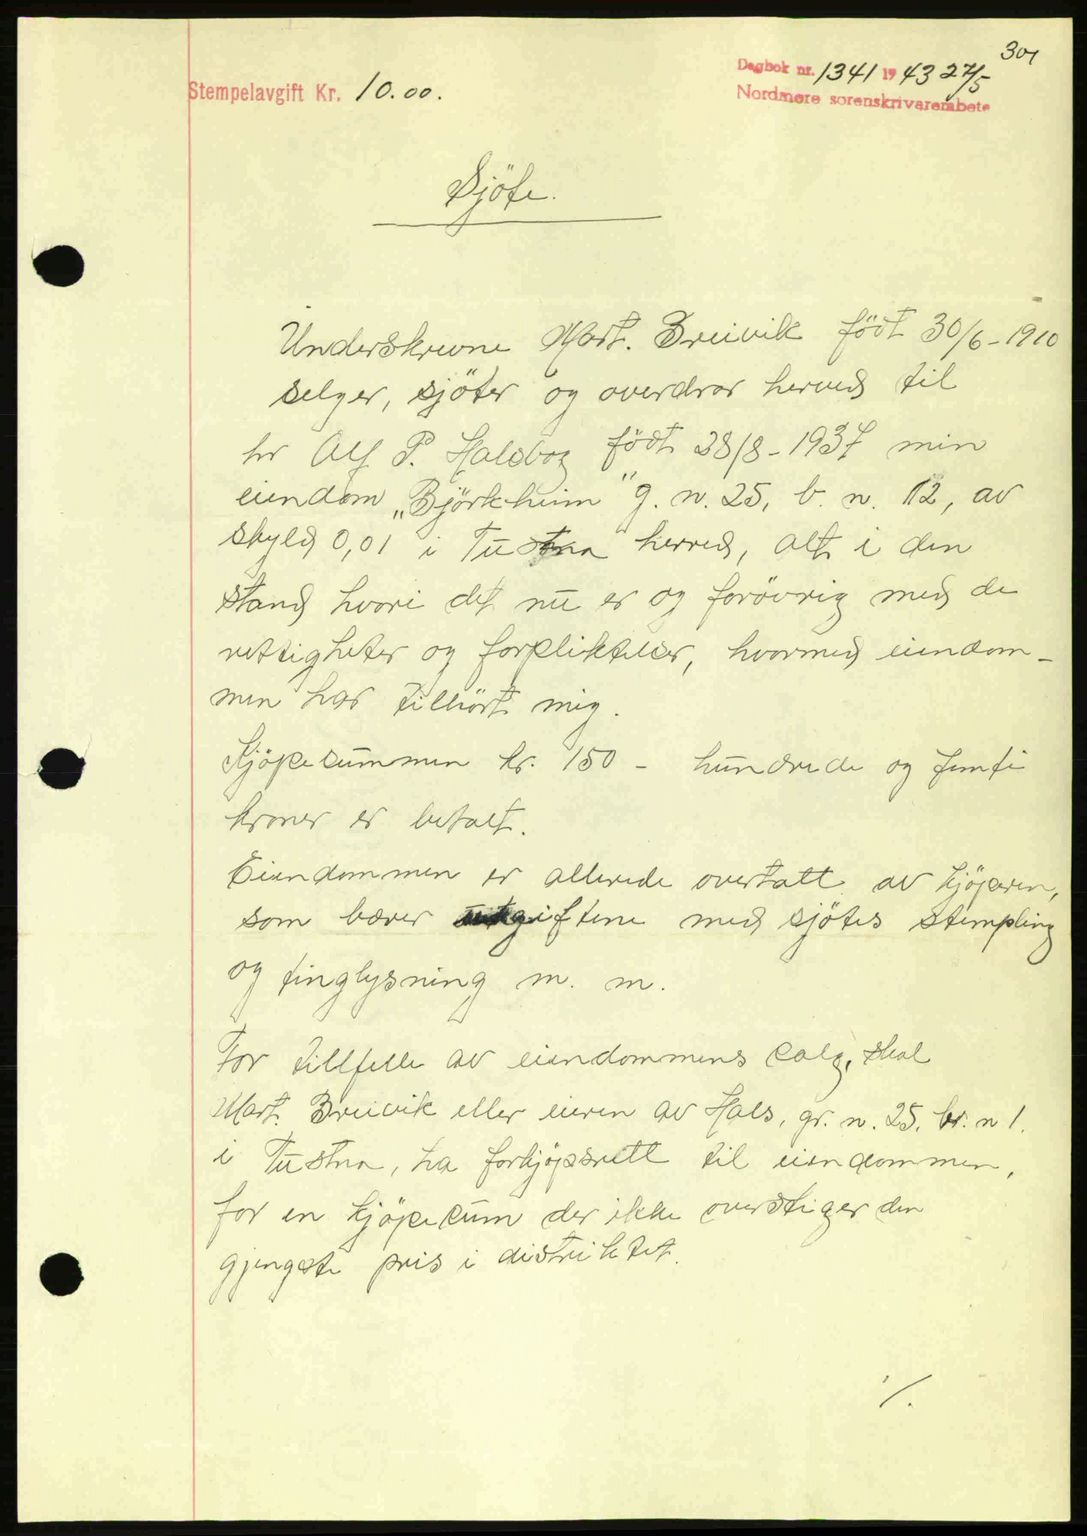 301
Stempelavgift Kr. 10.00.
Dagbok nr. 1341 1943 27/5
Nordmøre sorenskrivarembete
Sjöte.
Underskrevne Mart. Breivik födt 30/6-1910
selger, sjöter og overdrar herved til
hr Alf P. Halsbog födt 28/8-1937 min
eiendom „Björkheim" g. n. 25, b. n. 12, av
skyld 0,01 i Tustna herred, alt i den
stand hvori det nu er og forövrig med de
rettigheter og forpliktelser, hvormed eiendom-
men har tilhört mig.
Kjöpesummen kr. 150 - hundrede og femti
kroner er betalt.
Eiendommen er allerede overtatt av kjöperen,
som bærer utgiftene med sjötes stempling
og tinglysning m. m.
For tillfelle av eiendommens salg, skal
Mart. Breivik eller eieren av Hals, gr. n. 25, br. n 1.
i Tustna, ha forkjöpsrett til eiendommen,
for en kjöpesum der ikke overstiger den
gjengste pris i distriktet.
./.